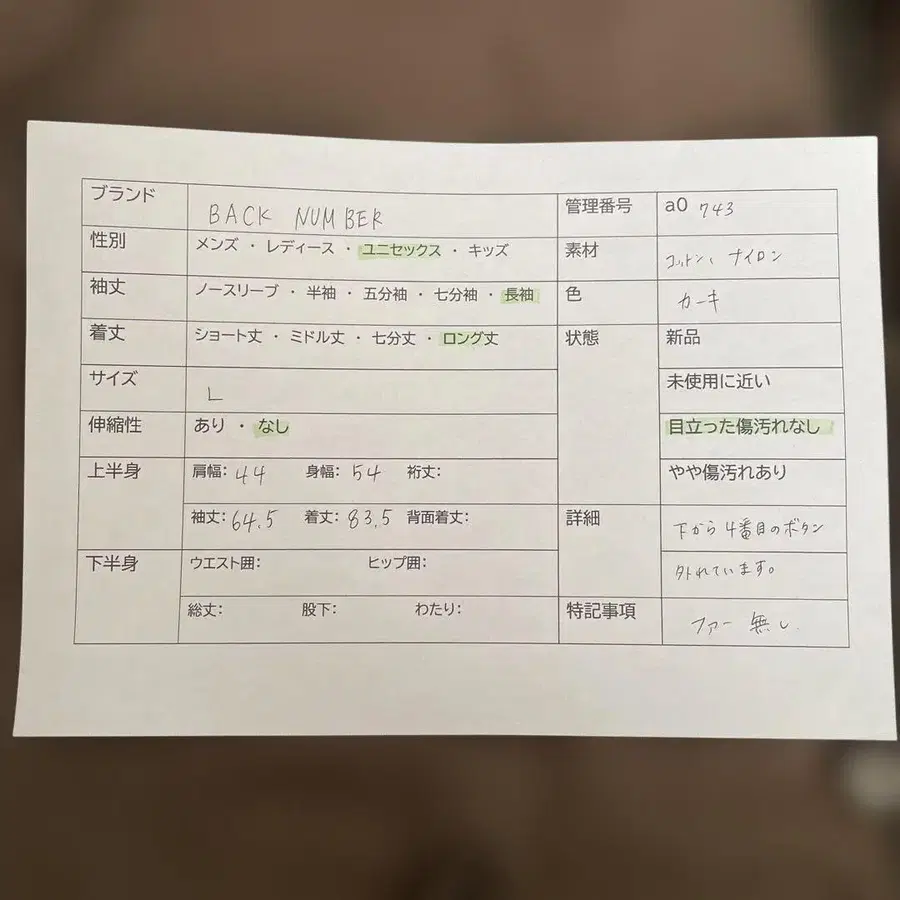 ブランド BACK NUMBER 管理番号 a0 743
性別 メンズ ・ レディース ・ ユニセックス ・ キッズ 素材 コットン、ナイロン
袖丈 ノースリーブ ・ 半袖 ・ 五分袖 ・ 七分袖 ・ 長袖 色 カーキ
着丈 ショート丈 ・ ミドル丈 ・ 七分丈 ・ ロング丈 状態 新品
サイズ L 未使用に近い
伸縮性 あり ・ なし 目立った傷汚れなし
上半身 肩幅: 44 身幅: 54 裄丈: やや傷汚れあり
袖丈: 64.5 着丈: 83.5 背面着丈: 詳細 下から4番目のボタン
下半身 ウエスト囲: ヒップ囲: 外れています。
総丈: 股下: わたり: 特記事項 ファー無し.